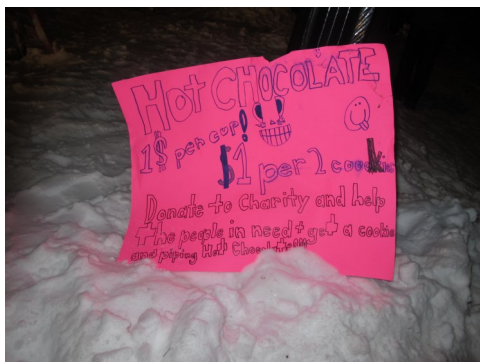 Hot CHOCOLATE
1$ per cup!
$1 per 2 coookie
Donate to Charity and help
the people in need + get a cookie
and piping Hot Chocolate!!!